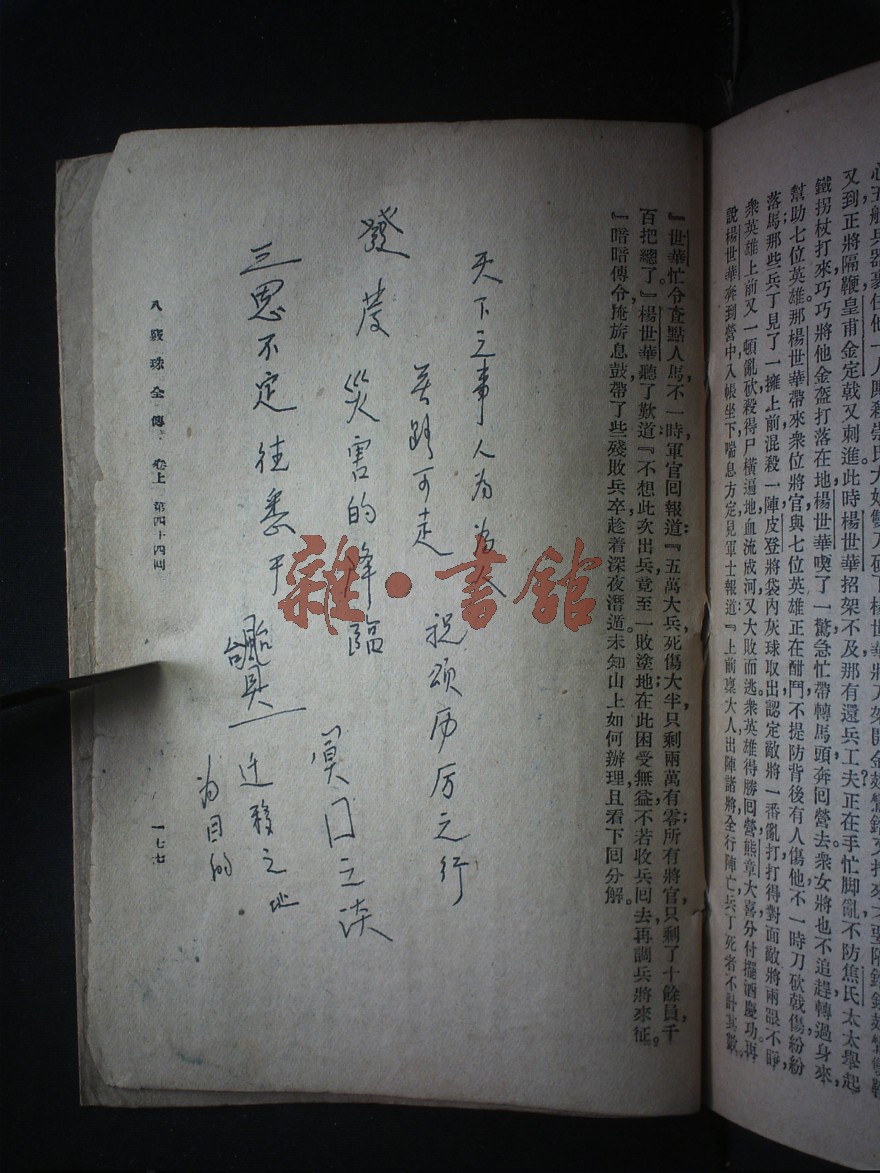 又到正將隔鞭皇甫金定戟又刺進此時楊世華招架不及那有還兵工夫正在手忙脚亂不防焦氏太太舉起
鐵拐杖打來巧巧將他金盔打落在地楊世華喫了一驚急忙帶轉馬頭奔回營去衆女將也不追趕轉過身來,
幫助七位英雄那楊世華帶來衆位將官與七位英雄正在酣鬥不提防背後有人傷他不一時刀砍戟傷紛紛
落馬那些兵丁見了一擁上前混殺一陣皮登將袋內灰球取出認定敵將一番亂打打得對面敵將兩眼不睜,
衆英雄上前又一頓亂砍殺得尸橫遍地血流成河又大敗而逃衆英雄得勝回營熊章大喜分付擺酒慶功。再
說楊世華奔到營中入帳坐下喘息方定見軍士報道『上前稟大人出陣諸將全行陣亡兵丁死者不計其數。
『世華忙令查點人馬不一時軍官回報道『五萬大兵死傷大半只剩兩萬有零所有將官只剩了十餘員千
百把總了』楊世華聽了歎道『不想此次出兵竟至一敗塗地在此困受無益不若收兵回去再調兵將來征。
『暗暗傳令掩旂息鼓帶了些殘敗兵卒趁着深夜潛遁未知山上如何辦理且看下回分解。
天下之事人為
可走 祝頌历厉之行
災害的降臨
之淡
三思不定往
迁移之地
為目的
八美珠全傳 卷上 第四十四回
一七七
雜·書館